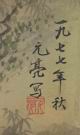 一九七七年秋
元亮写